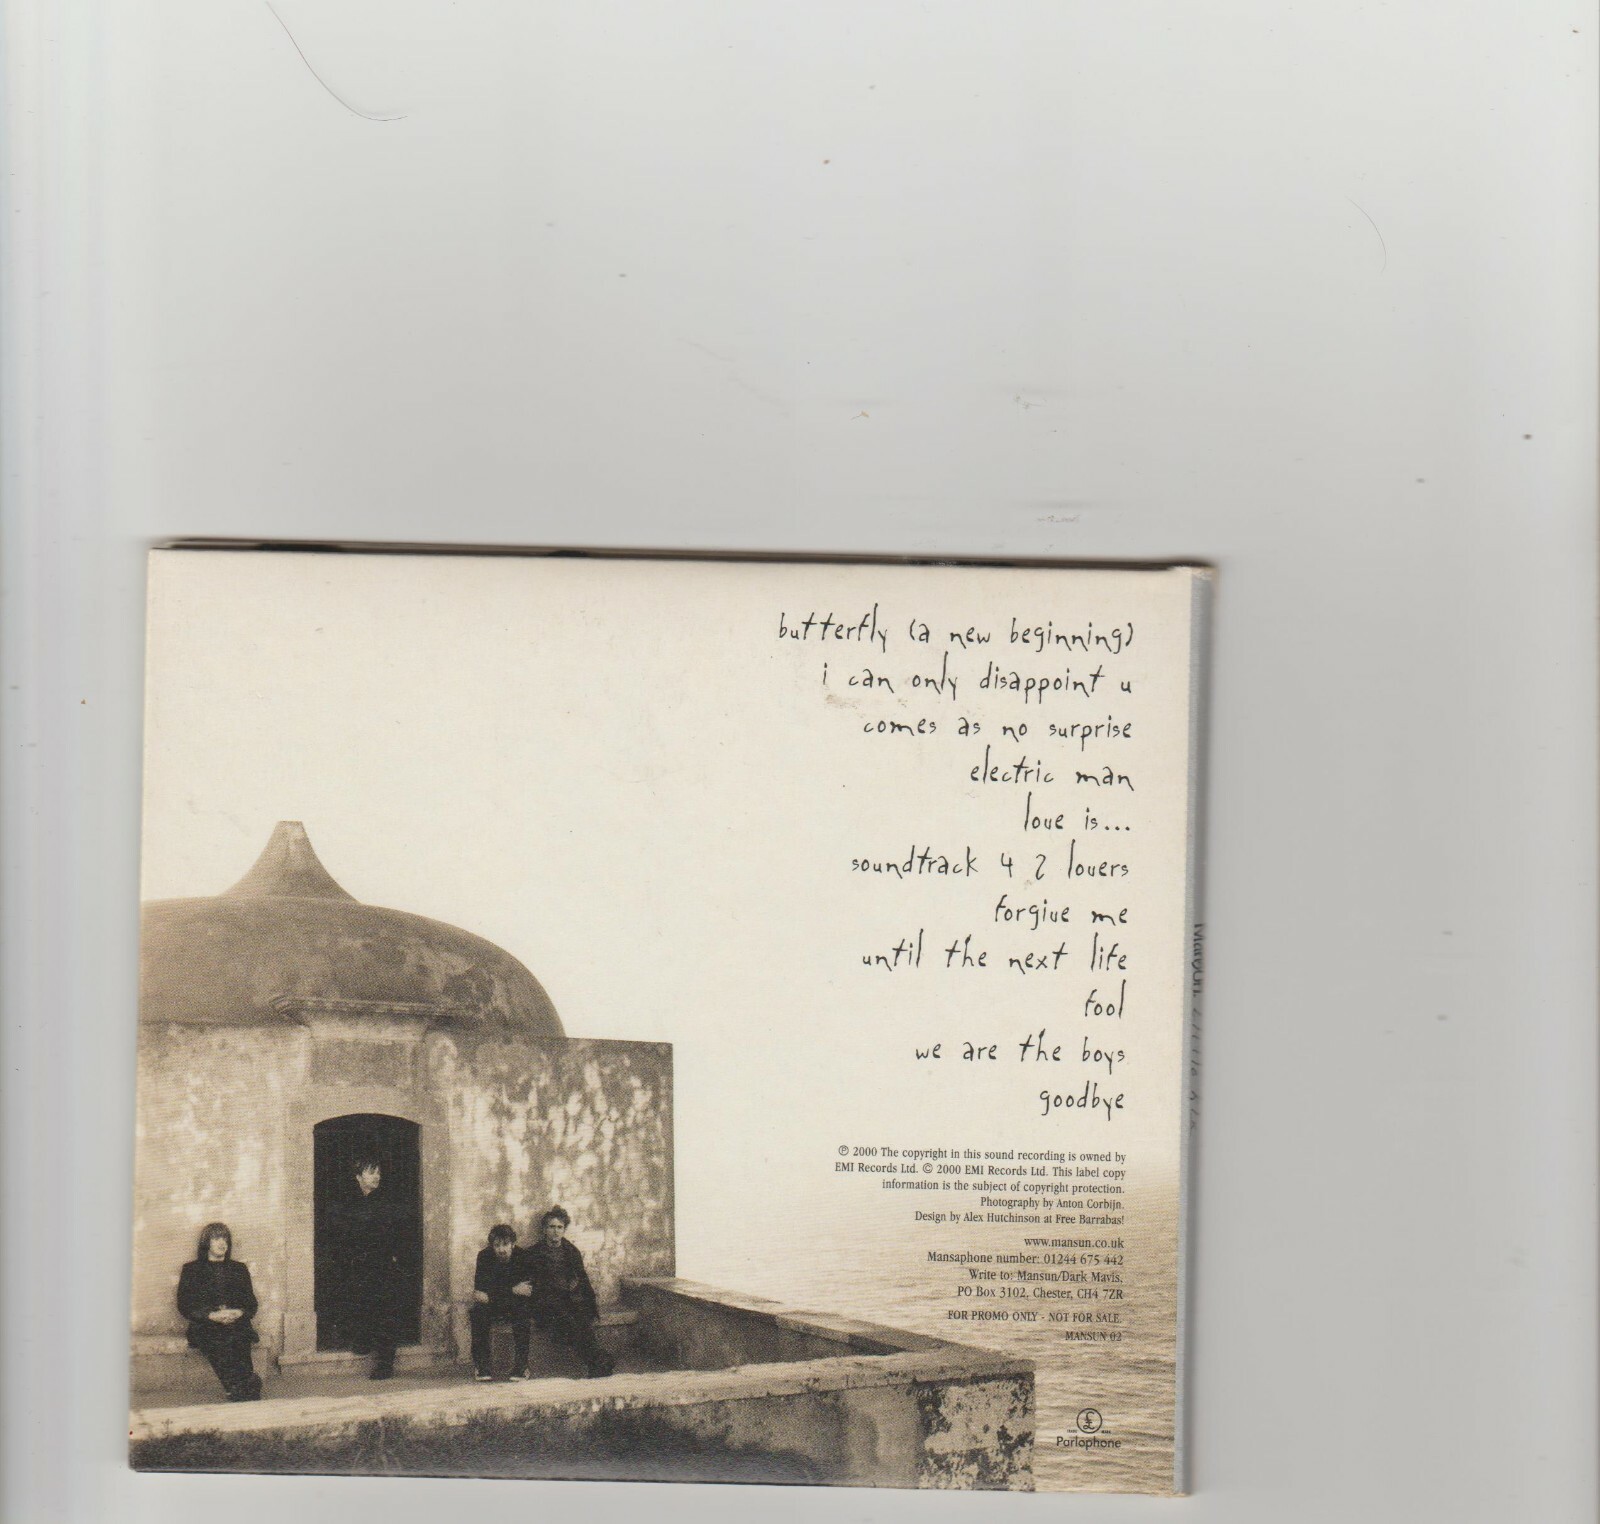 butterfly (a new beginning)
i can only disappoint u
comes as no surprise
electric man
love is...
soundtrack 4 2 lovers
forgive me
until the next life
fool
we are the boys
goodbye
℗ 2000 The copyright in this sound recording is owned by
EMI Records Ltd. © 2000 EMI Records Ltd. This label copy
information is the subject of copyright protection.
Photography by Anton Corbijn.
Design by Alex Hutchinson at Free Barrabas!
www.mansun.co.uk
Mansaphone number: 01244 675 442
Write to: Mansun/Dark Mavis,
PO Box 3102, Chester, CH4 7ZR
FOR PROMO ONLY - NOT FOR SALE.
MANSUN 02
Parlophone
Mansun